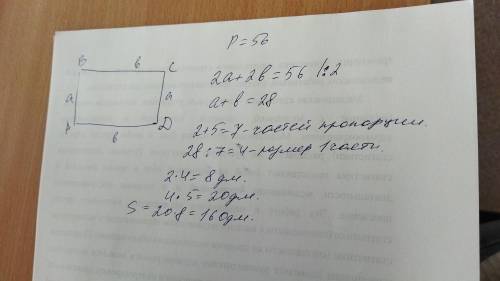 P = 56
B в C
a a
A в D
2a + 2в = 56 |:2
a + в = 28
2+5=7 - частей пропорции.
28:7=4 - размер 1 части.
2·4=8дм.
4·5=20дм.
S = 20·8=160дм.